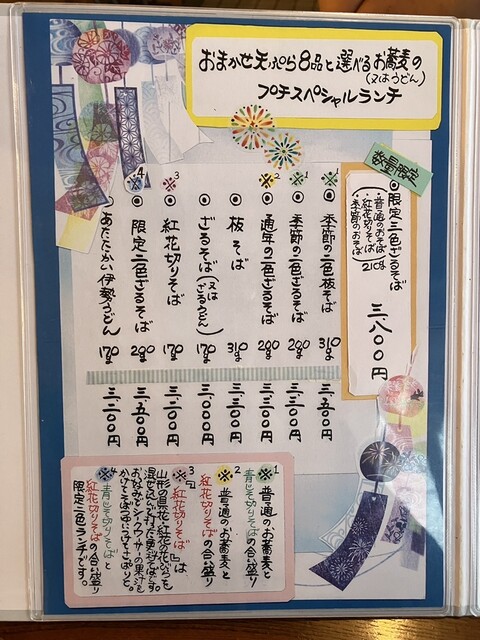 おまかせ天ぷら8品と選べるお蕎麦の
(又はうどん)
プチスペシャルランチ
数量限定
◉限定三色ざるそば
(普通のおそば
紅花切りそば
季節のおそば) 210g
三、八〇〇円
※1 ◉季節の二色板そば 310g 三、五〇〇円
※1 ◉季節の二色ざるそば 200g 三、二〇〇円
※2 ◉通年の二色ざるそば 200g 三、二〇〇円
◉板そば 310g 三、三〇〇円
◉ざるそば(又はざるうどん) 170g 三、〇〇〇円
※3 ◉紅花切りそば 170g 三、二〇〇円
※4 ◉限定二色ざるそば 200g 三、五〇〇円
◉あたたかい伊勢うどん 170g 三、二〇〇円
※1 普通のお蕎麦と
青じそ切りそばの合い盛り
※2 普通のお蕎麦と
紅花切りそばの合い盛り
※3『紅花切りそば』は
山形の県花・紅花の花びらを
混ぜ込んで打った変わりそばです。
おなみでシークワーサーの果汁を
かけてさっぱりと。
※4 青じそ切りそばと
紅花切りそばの合い盛り
限定二色ランチです。